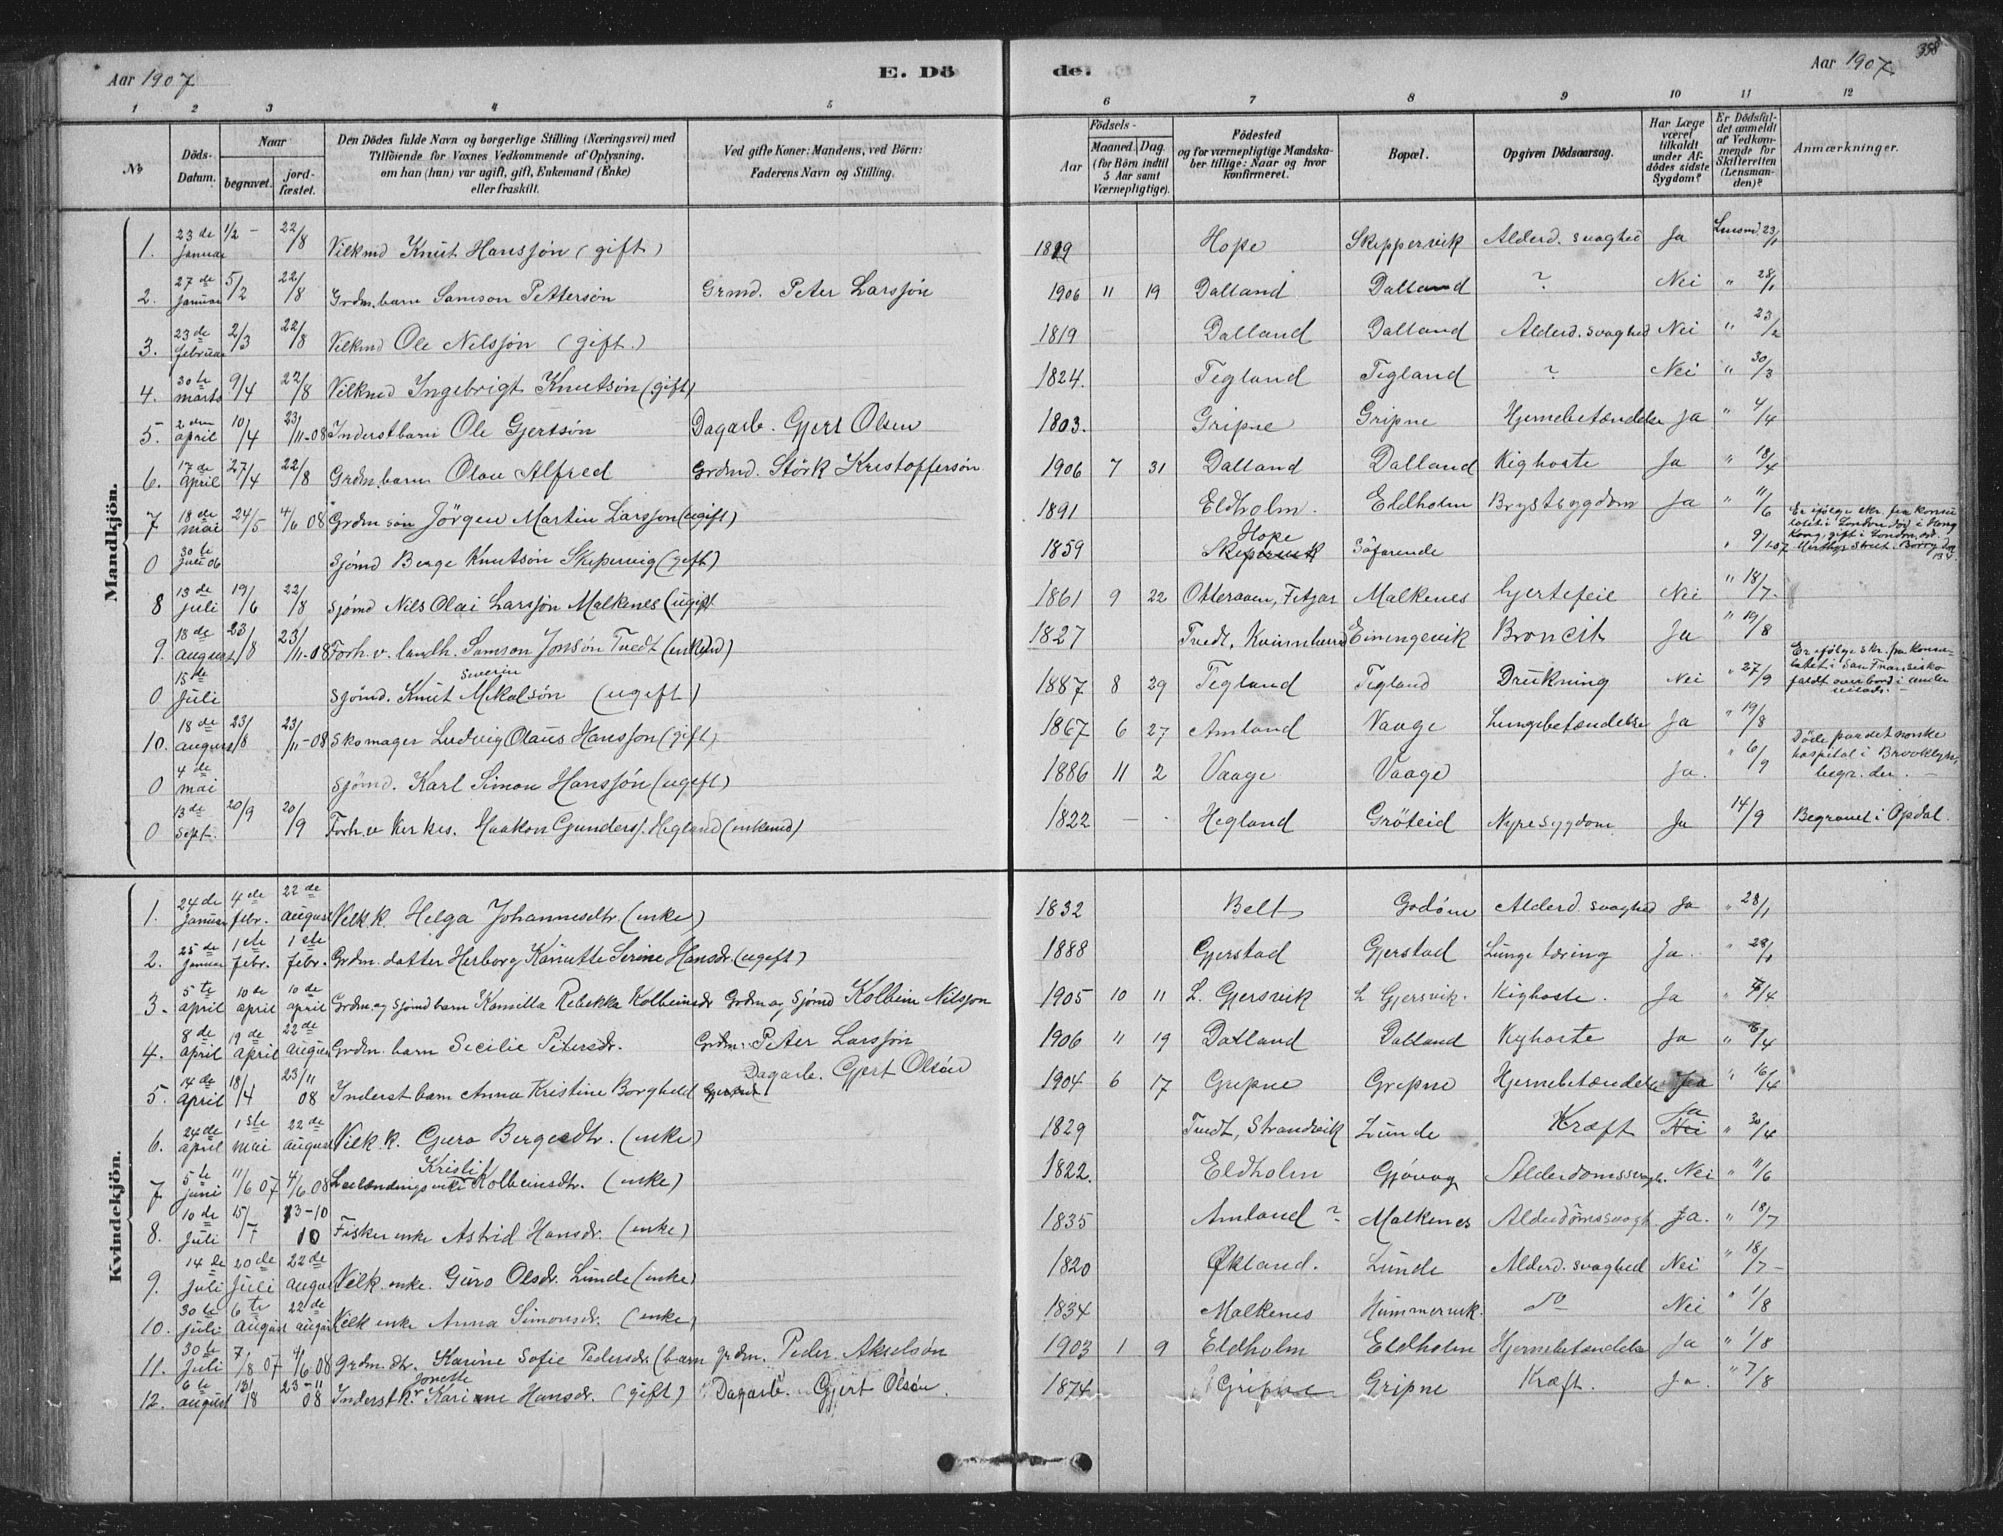 Aar 1907
E. Dö
de.
Aar 1907
358
1 2 3 4 5 6 7 8 9 10 11 12
№
Döds-Datum.
Naar
begravet.
jord-fæstet.
Den Dödes fulde Navn og borgerlige Stilling (Næringsvei) med
Tilföiende for Voxnes Vedkommende af Oplysning,
om han (hun) var ugift, gift, Enkemand (Enke)
eller fraskilt.
Ved gifte Koner: Mandens, ved Börn:
Faderens Navn og Stilling.
Födsels-
Aar
Maaned. Dag.
(for Börn indtil
5 Aar samt
Værnepligtige).
Födested
og for værnepligtige Mandska-
ber tillige: Naar og hvor
konfirmeret.
Bopæl.
Opgiven Dödsaarsag.
Har Læge
været
tilkaldt
under Af-
dödes sidste
Sygdom?
Er Dödsfal-
det anmeldt
af Vedkom-
mende for
Skifteretten
(Lensman-
den)?
Anmærkninger.
Mandkjön.
1. 23de Januar 1/2 - 22/8 Vilkmd Knut Hanssjøn (gift) 1819 Hope Skippervik Alderd. svaghed Ja Lensmd 23/1
2. 27de Januar 5/2 22/8 Grdm. barn Samson Pettersøn Grmd. Peter Larssjøn 1906 11 19 Dalland Dalland ? Nei " 28/1
3. 23de februar 2/3 22/8 Vilkmd Ole Nilssjøn (gift.) 1819 Dalland Dalland Alderd. svaghed Nei " 23/2
4. 30te marts 9/4 22/8 Vilkmd Ingebrigt Knutsøn (gift) 1824. Tegland Tegland ? Nei " 30/3
5. 2den april 10/4 23/11-08 Inderstbarn Ole Gjertsøn Dagarb. Gjert Olsen 1803. Gripne Gripne Hjernebetændelse Ja " 4/4
6. 17de April 27/4 22/8 Grdm. barn Olau Alfred Grdmd. Störk Kristoffersøn 1906 7 31 Dalland Dalland Kighoste Ja " 18/4
7 18de mai 24/5 4/6 08 Grdm søn Jörgen Martin Larssjon (ugift) 1891 Eldholm. Eldholm Brystsygdom Ja " 11/6
0 30te Juli 06 Sjømd Berge Knutsøn Skipervig (gift) 1859 Hope Skipervik Söfarende " 9/1-07 Er ifølge skr. fra konsu-
latet i London død i Hong
Kong, gift i London, ad.
Merthyr Street. Barry
8 13de Juli 19/6 22/8 Sjømd Nils Olai Larssjøn Malkenes (ugift 1861 9 22 Otteraaen, Fitjar Malkenes hjertefeil Nei " 18/7-
9. 18de august 23/8 23/11-08 Forh. v. landh. Samson Jonsøn Tvedt (enkemd) 1827 Tvedt, Kvinnherred Einingevik Broncit Ja " 19/8
0 15de Juli Sjömd. Knut Severin Mikalsøn (ugift) 1887 8 29 Tegland Tegland Drukning Nei " 27/9 Er ifølge skr. fra konsu-
latet i San Fransisko
faldt overbord i
10. 18de august 23/8 23/11-08 Skomager Ludvig Olaus Hanssjon (gift) 1867 6 27 Amland Vaage Lungebetændelse Ja " 19/8
0 4de mai Sjømd. Karl Simon Hanssjøn (ugift) 1886 11 2 Vaage Vaage Ja. " 6/9 Döde paa det norske
hospital i Brooklyn,
begr. der. -
0 13de Sept. 20/9 20/9 Forh. v Kirkes. Haakon Gunders. Hegland (enkemd) 1822 - - Hegland Grøteid Nyresygdom Ja 14/9 Begravet i Opdal.
Kvindekjön.
1. 24de Januar 4de febr. 22de august Vilk k. Helga Johannesdtr. (enke) 1832 Belt Godøne Alderd. svaghed Ja " 28/1
2. 25de Januar 1ste febr. 1ste febr. Grdm. datter Herborg Kanutte Serine Hansdr. (ugift) 1888 Gjerstad Gjerstad Lunge tæring Ja. " 28/1
3. 5te april 10de april 10de april Grdm. og Sjömd barn Kamilla Rebekka Kolbeinsdr Grdm og Sjömd Kolbein Nilsjon 1905 10 11 L. Gjersvik L Gjersvik. Kighoste. Ja " 8/4
4. 8de April 19de April 22de August Grdm. barn Secilie Petersdr. Grdm. Peter Larssjøn 1906 11 19 Dalland Dalland Kighoste Ja " 8/4
5. 14de April 18/4 23/11 08 Inderst barn Anna Kristine Borghild Gjertsdt Dagarb. Gjert Olsøn 1904 6 17 Gripne Gripne Hjernebetændelse Ja " 16/4
6. 24de April 1ste mai 22de august Vilk k. Guro Bergesdtr. (enke) 1829 Tvedt, Strandvik Lunde Kræft Ja Nei " 30/4
7 5te Juni 11/6 07 4/6 08 Leilændings enke Kristi Kolbeinsdtr. (enke) 1822. Eldholm Gjøvog Alderdomssvagh. Nei " 11/6
8. 10de Juli 15/7 13-10 10 Fisker enke Astrid Hansdr. (enke) 1835 Amland ? Malkenes Alderdømssvagt Ja. " 18/7
9. 14de Juli 20de Juli 22de august Vilk. enke. Guro Olsdr. Lunde (enke) 1820 Økland. Lunde Alderd. svaghed Nei " 18/7-
10. 30te Juli 6te August 22de august Vilk enke Anna Simonsdr. (enke) 1834 Malkenes Hummervik. Do Nei " 1/8
11. 30te Juli 7/8 07 4/6 08 Grdm. dtr. Karine Sofie Pedersdr. (barn grdm. Peder Akselsön 1903 1 9 Eldholm Eldholm Hjernebetændelse Ja " 1/8
12. 6te august 13/8 23-11 08 Inderst kr. Jonette Karine Hansdr. (gift) Dagarb. Gjert Olsøn. 1874 Gripne Gripne Kræft. Ja. " 7/8